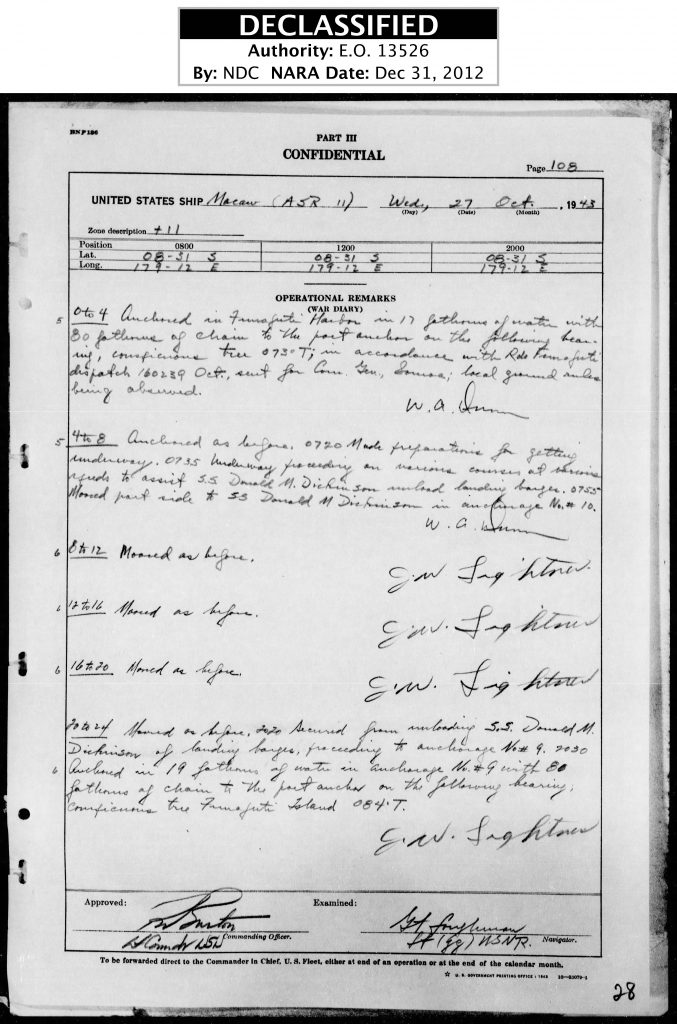 DECLASSIFIED
Authority: E.O. 13526
By: NDC NARA Date: Dec 31, 2012
PART III
CONFIDENTIAL
Page 108
UNITED STATES SHIP Macaw (ASR 11) Wed, 27 Oct. , 1943
(Day) (Date) (Month)
Zone description +11
Position 0800 1200 2000
Lat. 08-31 S 08-31 S 08-31 S
Long. 179-12 E 179-12 E 179-12 E
OPERATIONAL REMARKS
(WAR DIARY)
5 0 to 4 Anchored in Funafuti Harbor in 17 fathoms of water with
80 fathoms of chain to the port anchor on the following bear-
ing, conspicious tree 073° T; in accordance with Rdo Funafuti
dispatch 160239 Oct., sent for Com. Gen, Samoa; local ground rules
being observed.
W. A. Dunn
5 4 to 8 Anchored as before. 0720 Made preparations for getting
underway. 0735 Underway proceeding on various courses at various
speeds to assist S.S. Donald M. Dickinson unload landing barges. 0755
Moored port side to SS Donald M Dickinson in anchorage No. # 10.
W. A. Dunn
6 8 to 12 Moored as before.
J.W. Lightner
6 12 to 16 Moored as before.
J.W. Lightner
6 16 to 20 Moored as before.
J.W. Lightner
20 to 24 Moored as before. 2020 Secured from unloading S.S. Donald M.
Dickinson of landing barges, proceeding to anchorage No # 9. 2030
6 Anchored in 19 fathoms of water in anchorage No. # 9 with 80
fathoms of chain to the port anchor on the following bearing,
conspicious tree Funafuti Island 084° T.
J.W. Lightner
Approved: Examined:
Burton
Lt Comdr USN Commanding Officer.
Lt (jg) USNR. Navigator.
To be forwarded direct to the Commander in Chief, U. S. Fleet, either at end of an operation or at the end of the calendar month.
☆ U. S. GOVERNMENT PRINTING OFFICE : 1943
28